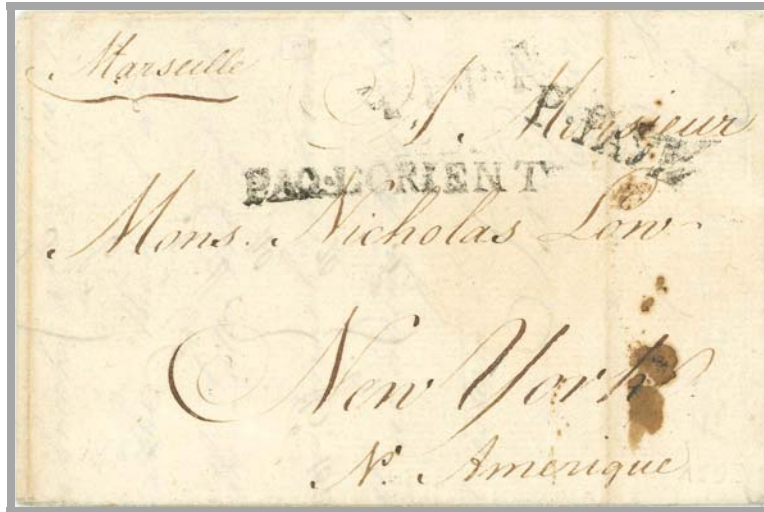 Marseille
A Monsieur
P.PAYÉ
PAQ.L'ORIENT
Mons. Nicholas Low
New York
No. Amerique